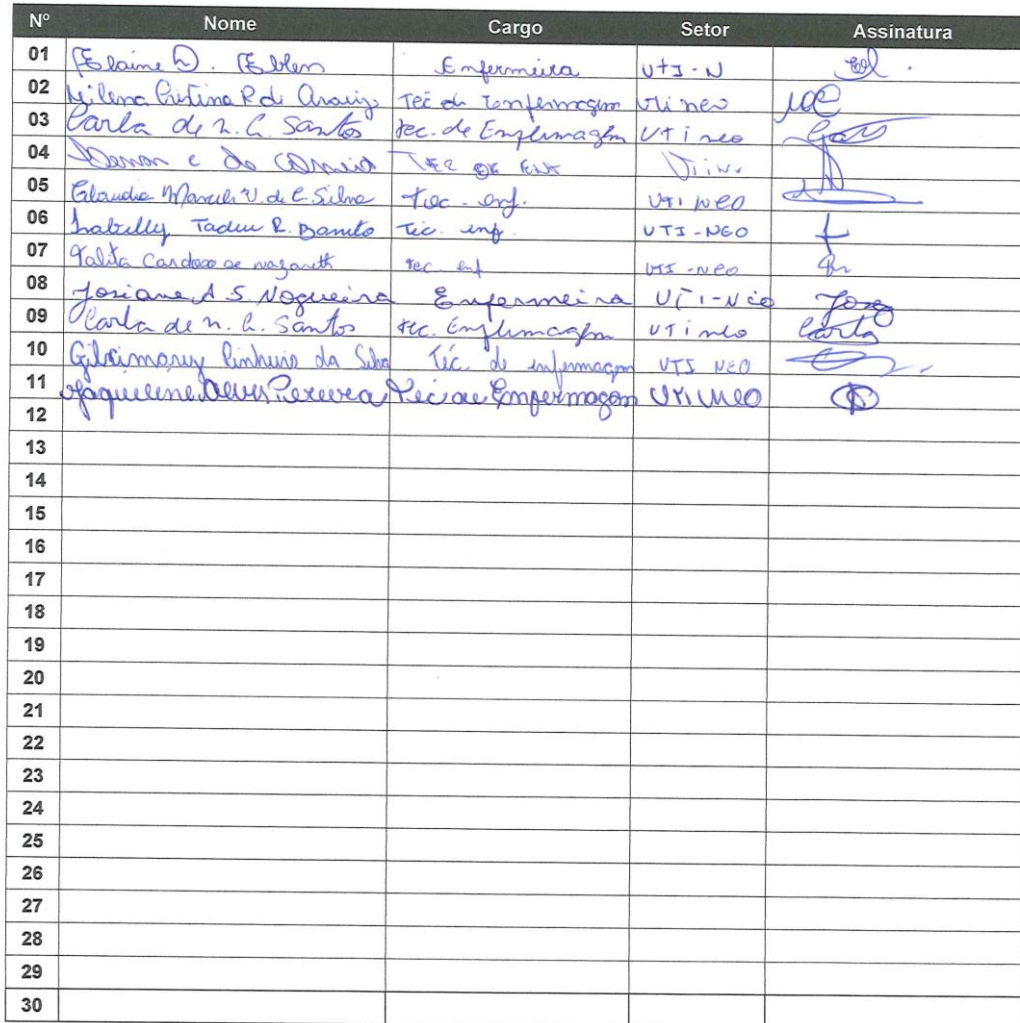 Nº Nome Cargo Setor Assinatura
01 Elaine D. Eblen Enfermeira UTI-N
02 Milena Cristina R de Araujo Tec de Enfermagem Uti neo
03 Carla de n. C. Santos tec. de Enfermagem UTi neo
04 TEC DE ENF
05 Claudia V. de C. Silva tec. enf. UTI NEO
06 Isabelly Tadeu R. Tec. enf. UTI-NEO
07 Talita Cardoso de nazareth tec. enf UTI-NEO
08 Josiane A S. Nogueira Enfermeira UTI-Neo
09 Carla de n. C. Santos tec. Enfermagem UTi neo Carla
10 Pinheiro da Silva Téc. de enfermagem UTI NEO
11 Jaqueline Alves Pereira Tec de Enfermagem UTI NEO
12
13
14
15
16
17
18
19
20
21
22
23
24
25
26
27
28
29
30